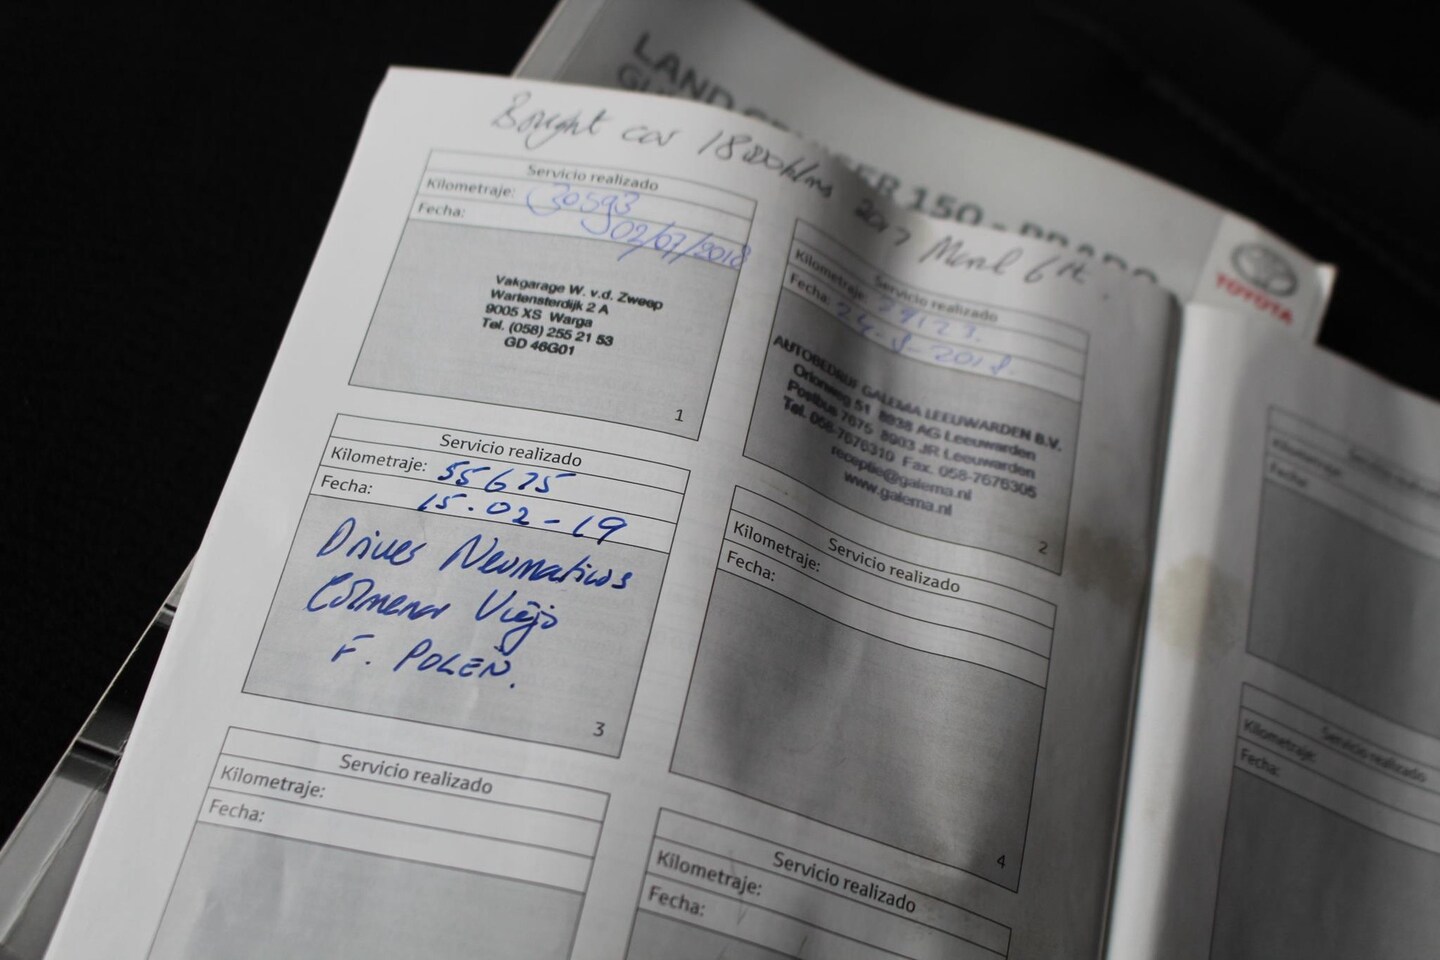 LAND CRUISER 150 - PRADO
TOYOTA
Bought car 18200 kms 2017
Servicio realizado
Kilometraje: 30593
Fecha: 02/07/2018
Vakgarage W. v.d. Zweep
Wartensterdijk 2 A
9005 XS Warga
Tel. (058) 255 21 53
GD 46G01
1
Servicio realizado
Kilometraje:
Fecha: 24-8-2018.
AUTOBEDRIJF GALEMA LEEUWARDEN B.V.
Orionweg 51 8938 AG Leeuwarden
Postbus 7675 8903 JR Leeuwarden
Tel. 058-7676310 Fax. 058-7676305
receptie@galema.nl
www.galema.nl
2
Servicio realizado
Kilometraje: 55675
Fecha: 15-02-19
Driver Neumaticos
Colmenar Viejo
F. POLEN.
3
Servicio realizado
Kilometraje:
Fecha:
4
Servicio realizado
Kilometraje:
Fecha:
Servicio realizado
Kilometraje:
Fecha:
Kilometraje:
Fecha:
Servicio realizado
Kilometraje:
Fecha: